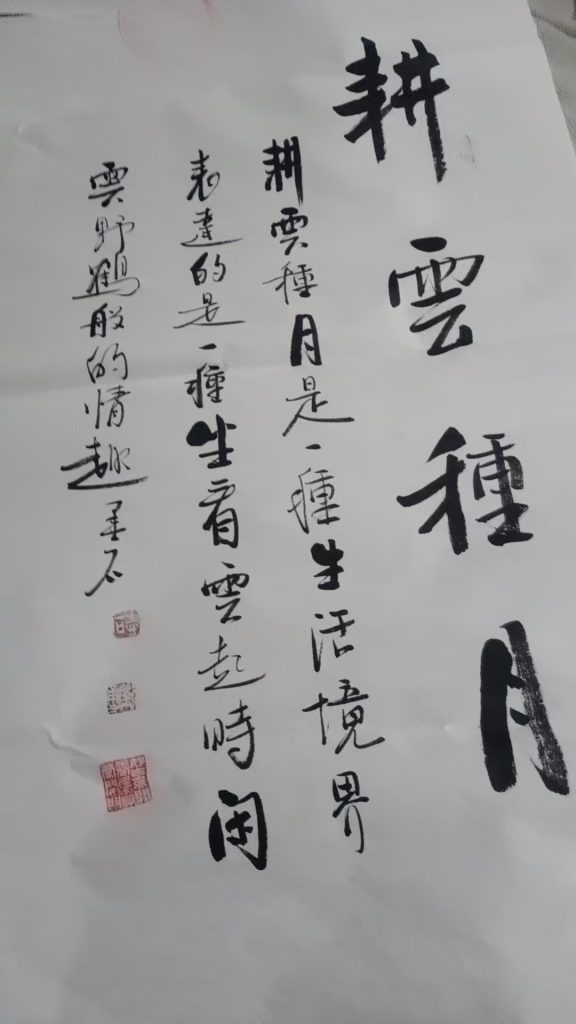 耕雲種月
耕雲種月是一種生活境界
表達的是一種坐看雲起時閑
雲野鶴般的情趣